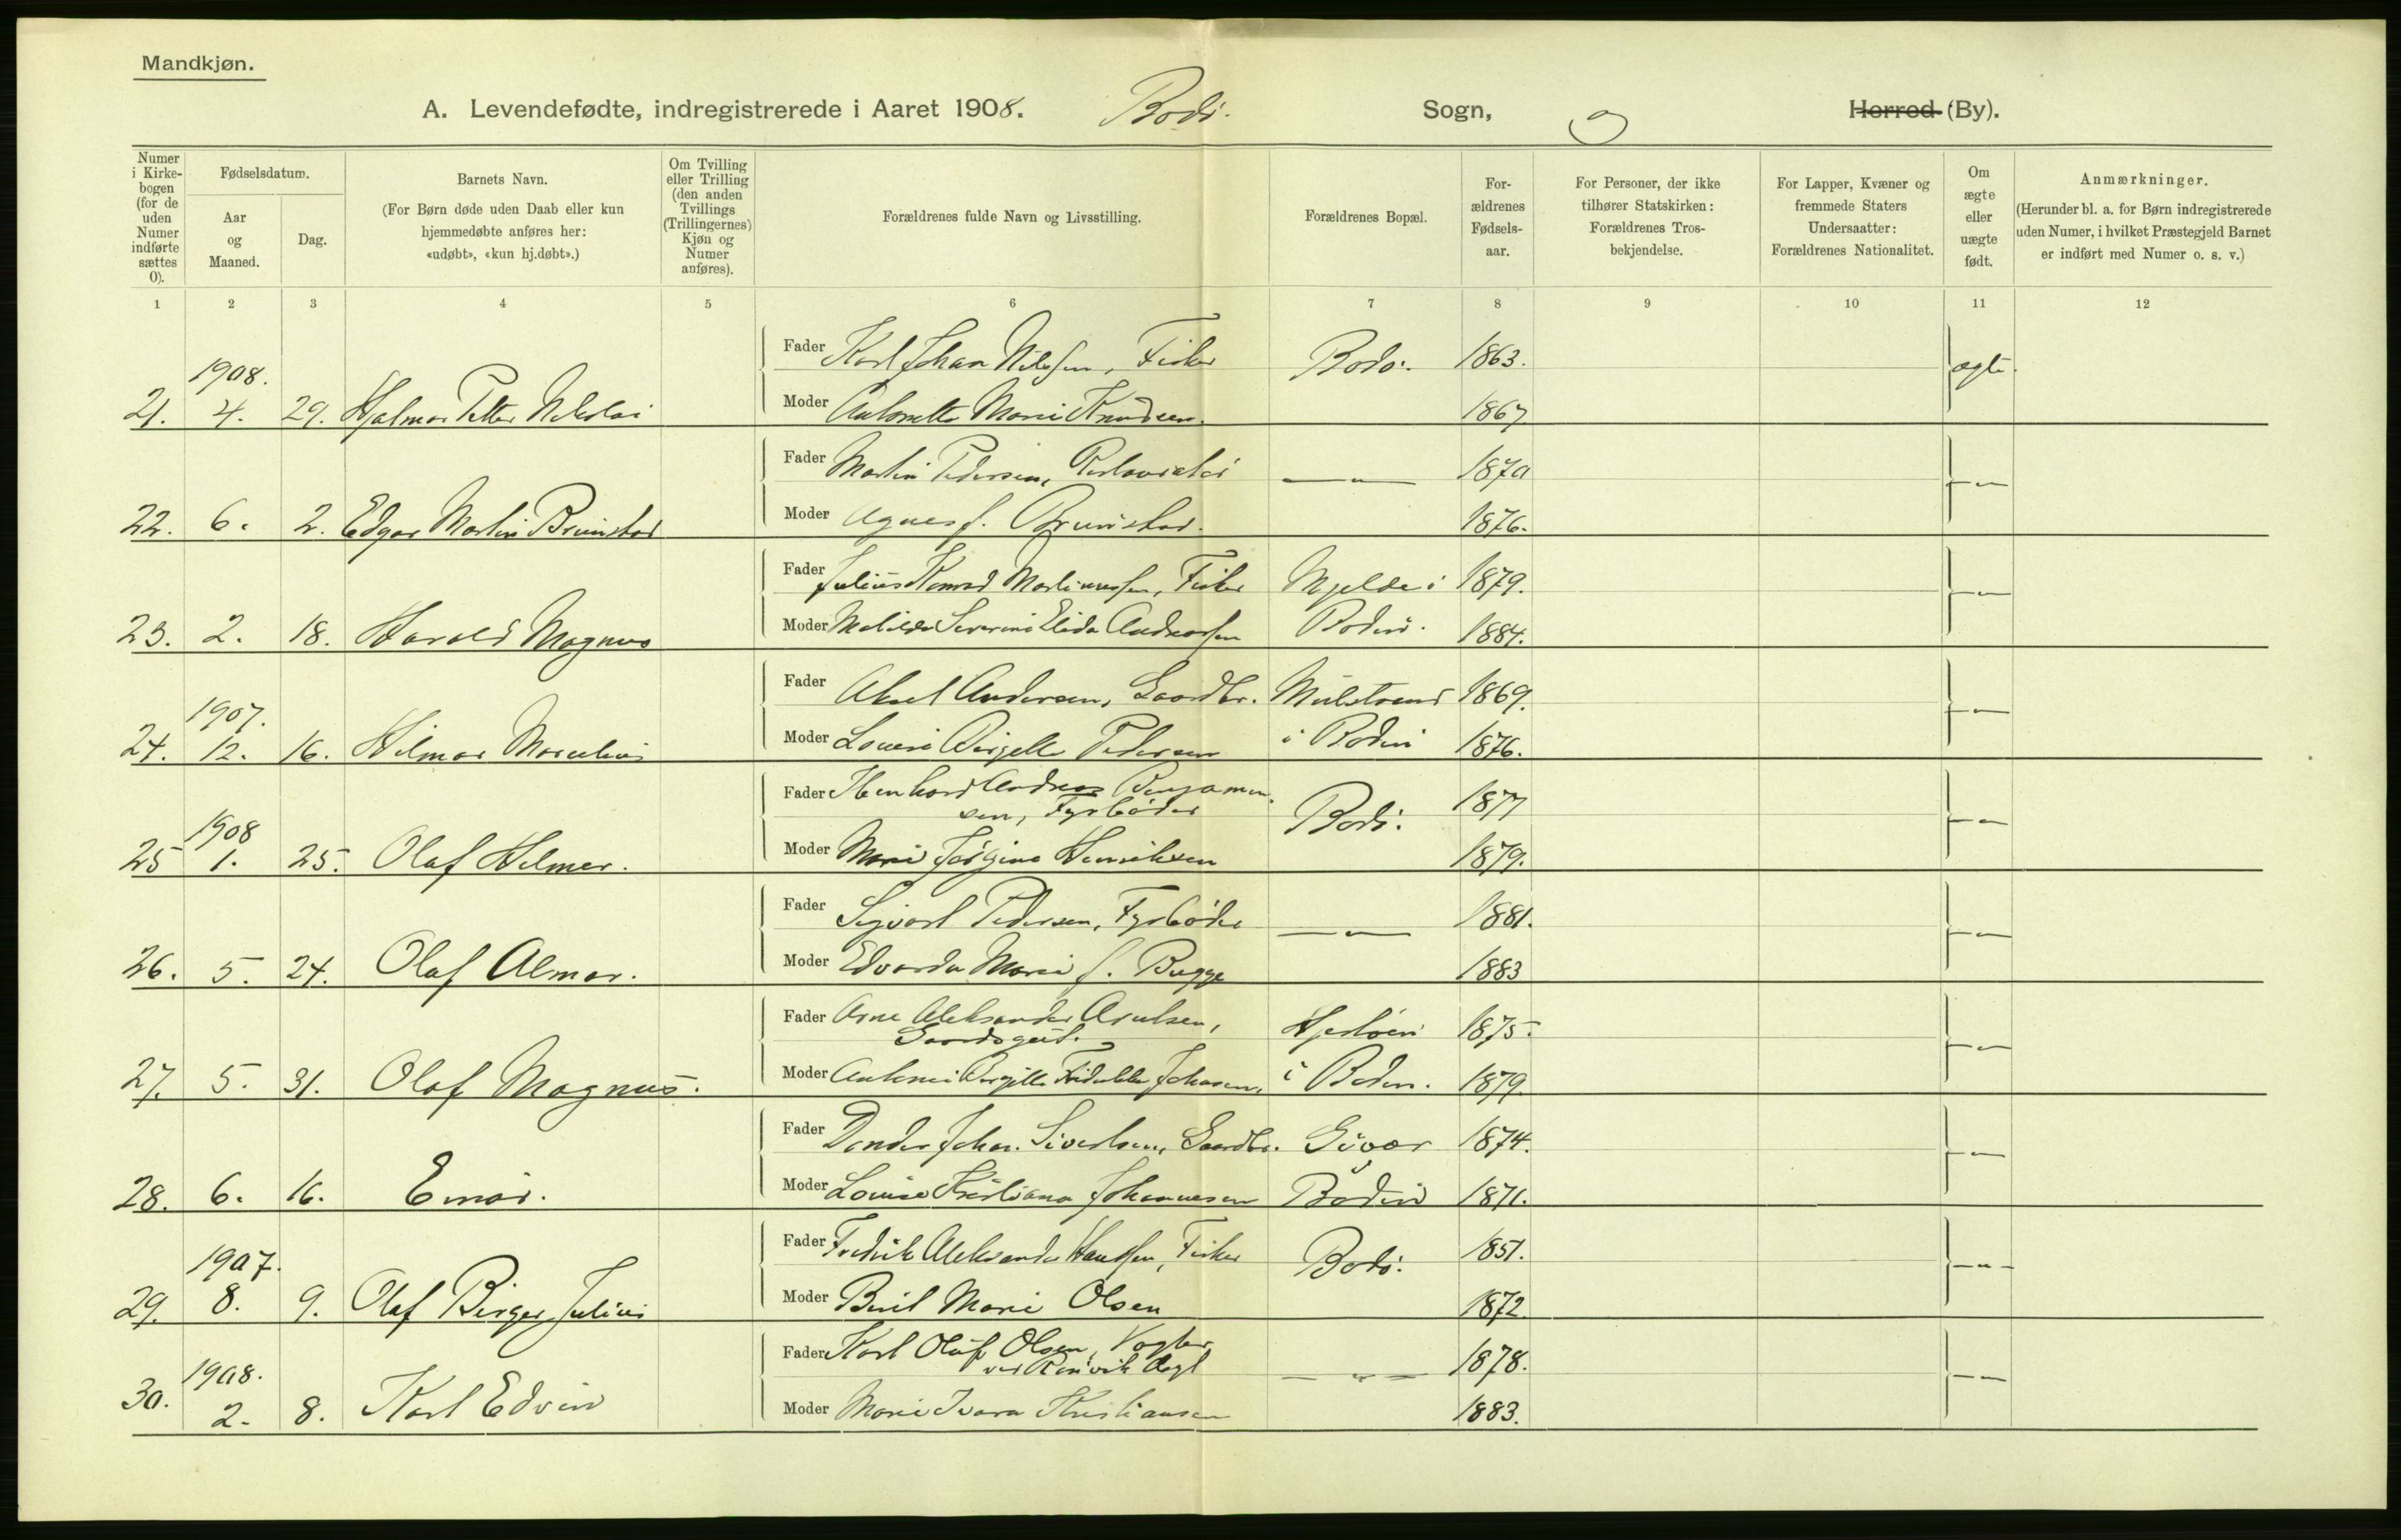 Mandkjøn.
A. Levendefødte, indregistrerede i Aaret 1908. Bodø. Sogn, Herred (By).
Numer i Kirkebogen (for de uden Numer indførte sættes 0).
Fødselsdatum.
Aar og Maaned.
Dag.
Barnets Navn.
(For Børn døde uden Daab eller kun hjemmedøbte anføres her: «udøbt», «kun hj.døbt».)
Om Tvilling eller Trilling (den anden Tvillings (Trillingernes) Kjøn og Numer anføres).
Forældrenes fulde Navn og Livsstilling.
Forældrenes Bopæl.
Forældrenes Fødselsaar.
For Personer, der ikke tilhører Statskirken: Forældrenes Trosbekjendelse.
For Lapper, Kvæner og fremmede Staters Undersaatter: Forældrenes Nationalitet.
Om ægte eller uægte født.
Anmærkninger.
(Herunder bl. a. for Børn indregistrerede uden Numer, i hvilket Præstegjeld Barnet er indført med Numer o. s. v.)
1 2 3 4 5 6 7 8 9 10 11 12
Fader Karl Johan Nilsen, Fisker Bodø. 1863. ægte.
1908.
21. 4. 29. Hjalmar Petter Nikolai Moder Antonette Marie Knudsen. 1867
Fader Martin Pedersen, — " — 1870 — " —
22. 6. 2. Edgar Martin Brunstad Moder Agnes f. Brunstad. 1876.
Fader Julius Konrad Martinussen, Fisker Mjelde i 1879. — " —
23. 2. 18. Harald Magnus Moder Matilde Severine Elida Andreassen Bodin. 1884.
Fader Aksel Andersen, Gaardbr. 1869. — " —
1907.
24. 12. 16. Hilmar Marelius Moder Louise Birgitte Pedersen i Bodin 1876.
Fader Andreas Benjaminsen, Fyrbøder Bodø. 1877 — " —
1908
25 1. 25. Olaf Hilmer. Moder Marie Jørgine Henriksen 1879.
Fader Sigvart Pedersen, Fyrbøder — " — 1881. — " —
26. 5. 24. Olaf Almar. Moder Edvarda Marie f. Bugge 1883
Fader Arne Aleksander Arntsen, Hjertøen 1875. — " —
Gaardsgut.
27. 5. 31. Olaf Magnus. Moder Antonie Birgitte Johansen, i Bodin. 1879
Fader Johan Sivertsen, Gaardbr. Givær 1874. — " —
28. 6. 16. Einar. Moder Louise Kristiana Johannesen Bodin 1871.
Fader Fredrik Aleksander Hansen, Fisker Bodø. 1851. — " —
1907.
29. 8. 9. Olaf Birger Julius Moder Beril Marie Olsen 1872
Fader Karl Oluf Olsen, Vogter — " — 1878. — " —
ved Rønvik Asyl
1908.
30. 2. 8. Karl Edvin Moder Marie Ivara Kristiansen 1883.